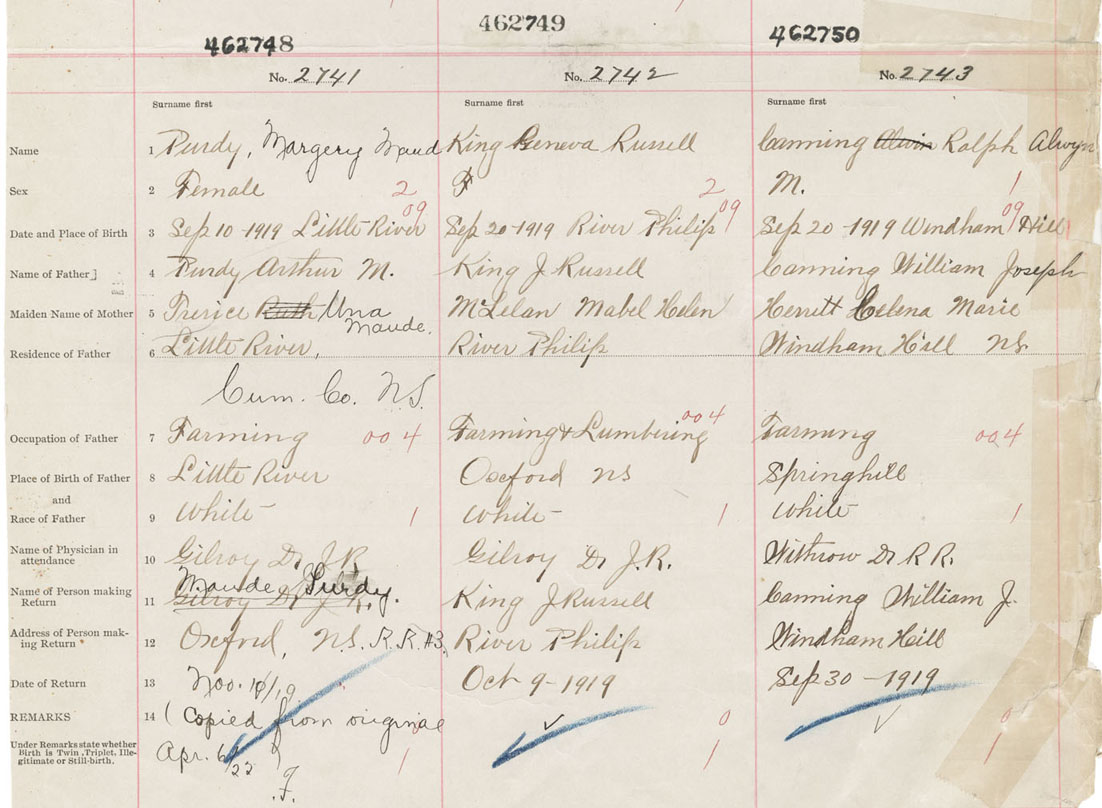 462748 462749 462750
No. 2741 No. 2742 No. 2743
Surname first Surname first Surname first
Name 1 Purdy, Margery Maud King Geneva Russell Canning Alwin Ralph Alwyn
Sex 2 Female 2 F 2 M. 1
09 09 09
Date and Place of Birth 3 Sep 10-1919 Little River Sep 20-1919 River Philip Sep 20-1919 Windham Hill
Name of Father 4 Purdy Arthur M. King J Russell Canning William Joseph
Maiden Name of Mother 5 Trerice Ruth Una McLelan Mabel Helen Herrett Helena Marie
Maude.
Residence of Father 6 Little River, River Philip Windham Hill NS.
Cum. Co. N.S.
Occupation of Father 7 Farming 004 Farming & Lumbering 004 Farming 004
Place of Birth of Father 8 Little River Oxford NS Springhill
and
Race of Father 9 White 1 White 1 White 1
Name of Physician in
attendance 10 Gilroy Dr J.R. Gilroy Dr J.R. Withrow Dr R R.
Maude Purdy.
Name of Person making
Return 11 Gilroy Dr J.R. King J Russell Canning William J.
Address of Person mak-
ing Return 12 Oxford, N.S. R.R. #3 River Philip Windham Hill
Date of Return 13 Nov. /19 Oct 9-1919 Sep 30-1919
REMARKS 14 (Copied from original 0 0
Under Remarks state whether
Birth is Twin, Triplet, Ille-
gitimate or Still-birth. Apr. 6/22) 1 1 1